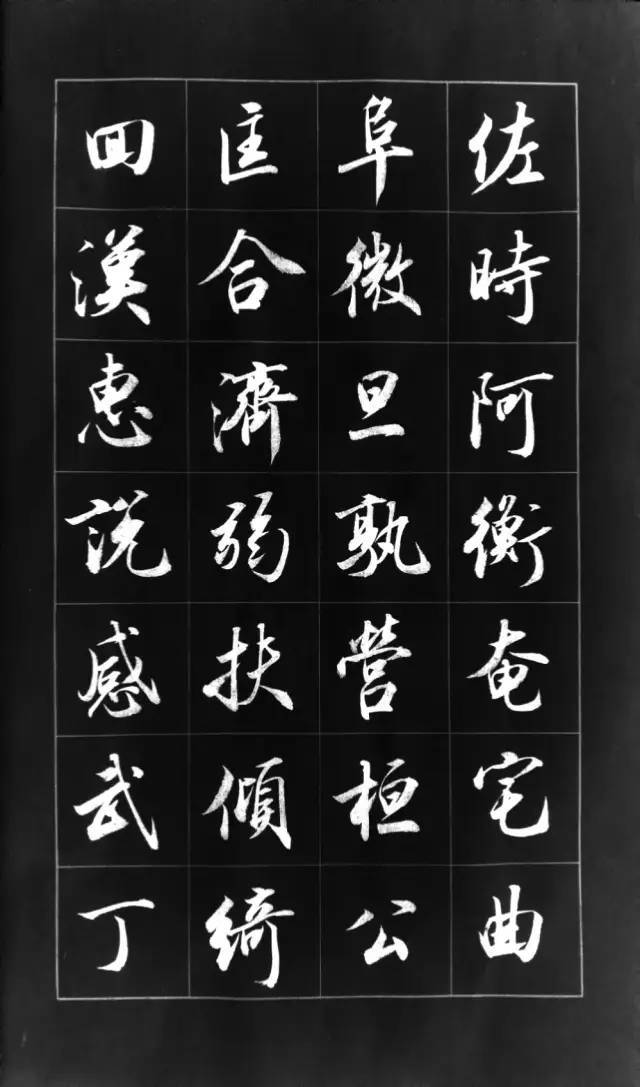 佐時阿衡奄宅曲
阜微旦孰營桓公
匡合濟弱扶傾綺
回漢惠說感武丁